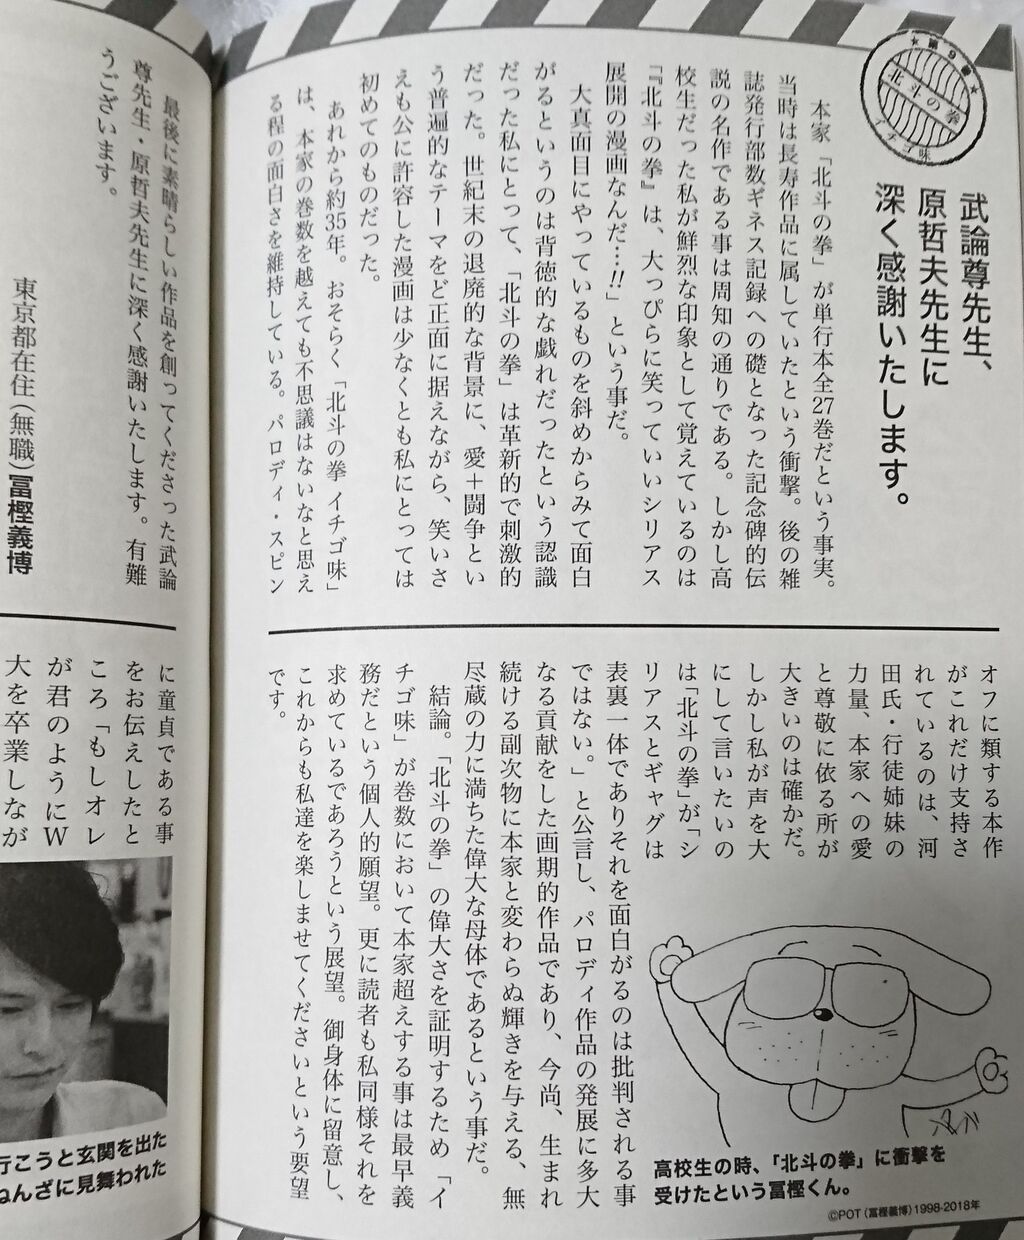 第9巻
北斗の拳
イチゴ味
武論尊先生、
原哲夫先生に
深く感謝いたします。
本家「北斗の拳」が単行本全27巻だという事実。
当時は長寿作品に属していたという衝撃。後の雑
誌発行部数ギネス記録への礎となった記念碑的伝
説の名作である事は周知の通りである。しかし高
校生だった私が鮮烈な印象として覚えているのは
「『北斗の拳』は、大っぴらに笑っていいシリアス
展開の漫画なんだ…!!」という事だ。
大真面目にやっているものを斜めからみて面白
がるというのは背徳的な戯れだったという認識
だった私にとって、「北斗の拳」は革新的で刺激的
だった。世紀末の退廃的な背景に、愛+闘争とい
う普遍的なテーマをど正面に据えながら、笑いさ
えも公に許容した漫画は少なくとも私にとっては
初めてのものだった。
あれから約35年。おそらく「北斗の拳 イチゴ味」
は、本家の巻数を越えても不思議はないなと思え
る程の面白さを維持している。パロディ・スピン
オフに類する本作
がこれだけ支持さ
れているのは、河
田氏・行徒姉妹の
力量、本家への愛
と尊敬に依る所が
大きいのは確かだ。
しかし私が声を大
にして言いたいの
は「北斗の拳」が「シ
リアスとギャグは
表裏一体でありそれを面白がるのは批判される事
ではない。」と公言し、パロディ作品の発展に多大
なる貢献をした画期的作品であり、今尚、生まれ
続ける副次物に本家と変わらぬ輝きを与える、無
尽蔵の力に満ちた偉大な母体であるという事だ。
結論。「北斗の拳」の偉大さを証明するため「イ
チゴ味」が巻数において本家超えする事は最早義
務だという個人的願望。更に読者も私同様それを
求めているであろうという展望。御身体に留意し、
これからも私達を楽しませてくださいという要望
です。
高校生の時、「北斗の拳」に衝撃を
受けたという冨樫くん。
©POT(冨樫義博)1998-2018年
最後に素晴らしい作品を創ってくださった武論
尊先生・原哲夫先生に深く感謝いたします。有難
うございます。
東京都在住(無職)冨樫義博
に童貞である事
をお伝えしたと
ころ「もしオレ
が君のようにW
大を卒業しなが
行こうと玄関を出た
ねんざに見舞われた